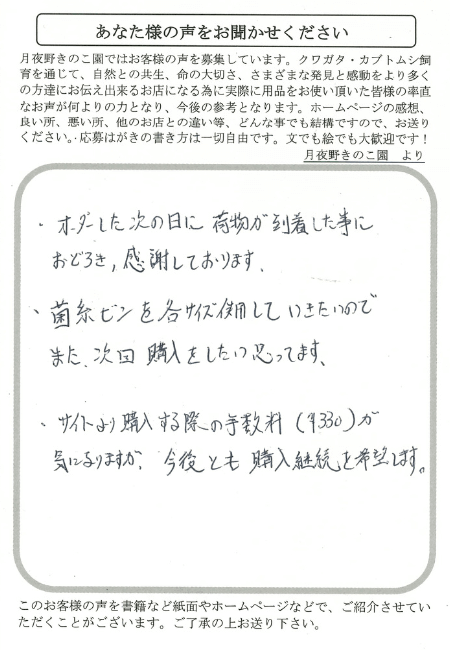 あなた様の声をお聞かせください
月夜野きのこ園ではお客様の声を募集しています。クワガタ・カブトムシ飼
育を通じて、自然との共生、命の大切さ、さまざまな発見と感動をより多く
の方達にお伝え出来るお店になる為に実際に用品をお使い頂いた皆様の率直
なお声が何よりの力となり、今後の参考となります。ホームページの感想、
良い所、悪い所、他のお店との違い等、どんな事でも結構ですので、お送り
ください。応募はがきの書き方は一切自由です。文でも絵でも大歓迎です！
月夜野きのこ園　より
・オーダーした次の日に荷物が到着した事に
おどろき，感謝しております、
・菌糸ビンを各サイズ使用していきたいので
また、次回購入をしたい思ってます、
・サイトより購入する際の手数料（¥330）が
気になりますが、今後とも購入継続を希望します。
このお客様の声を書籍など紙面やホームページなどで、ご紹介させてい
ただくことがございます。ご了承の上お送り下さい。